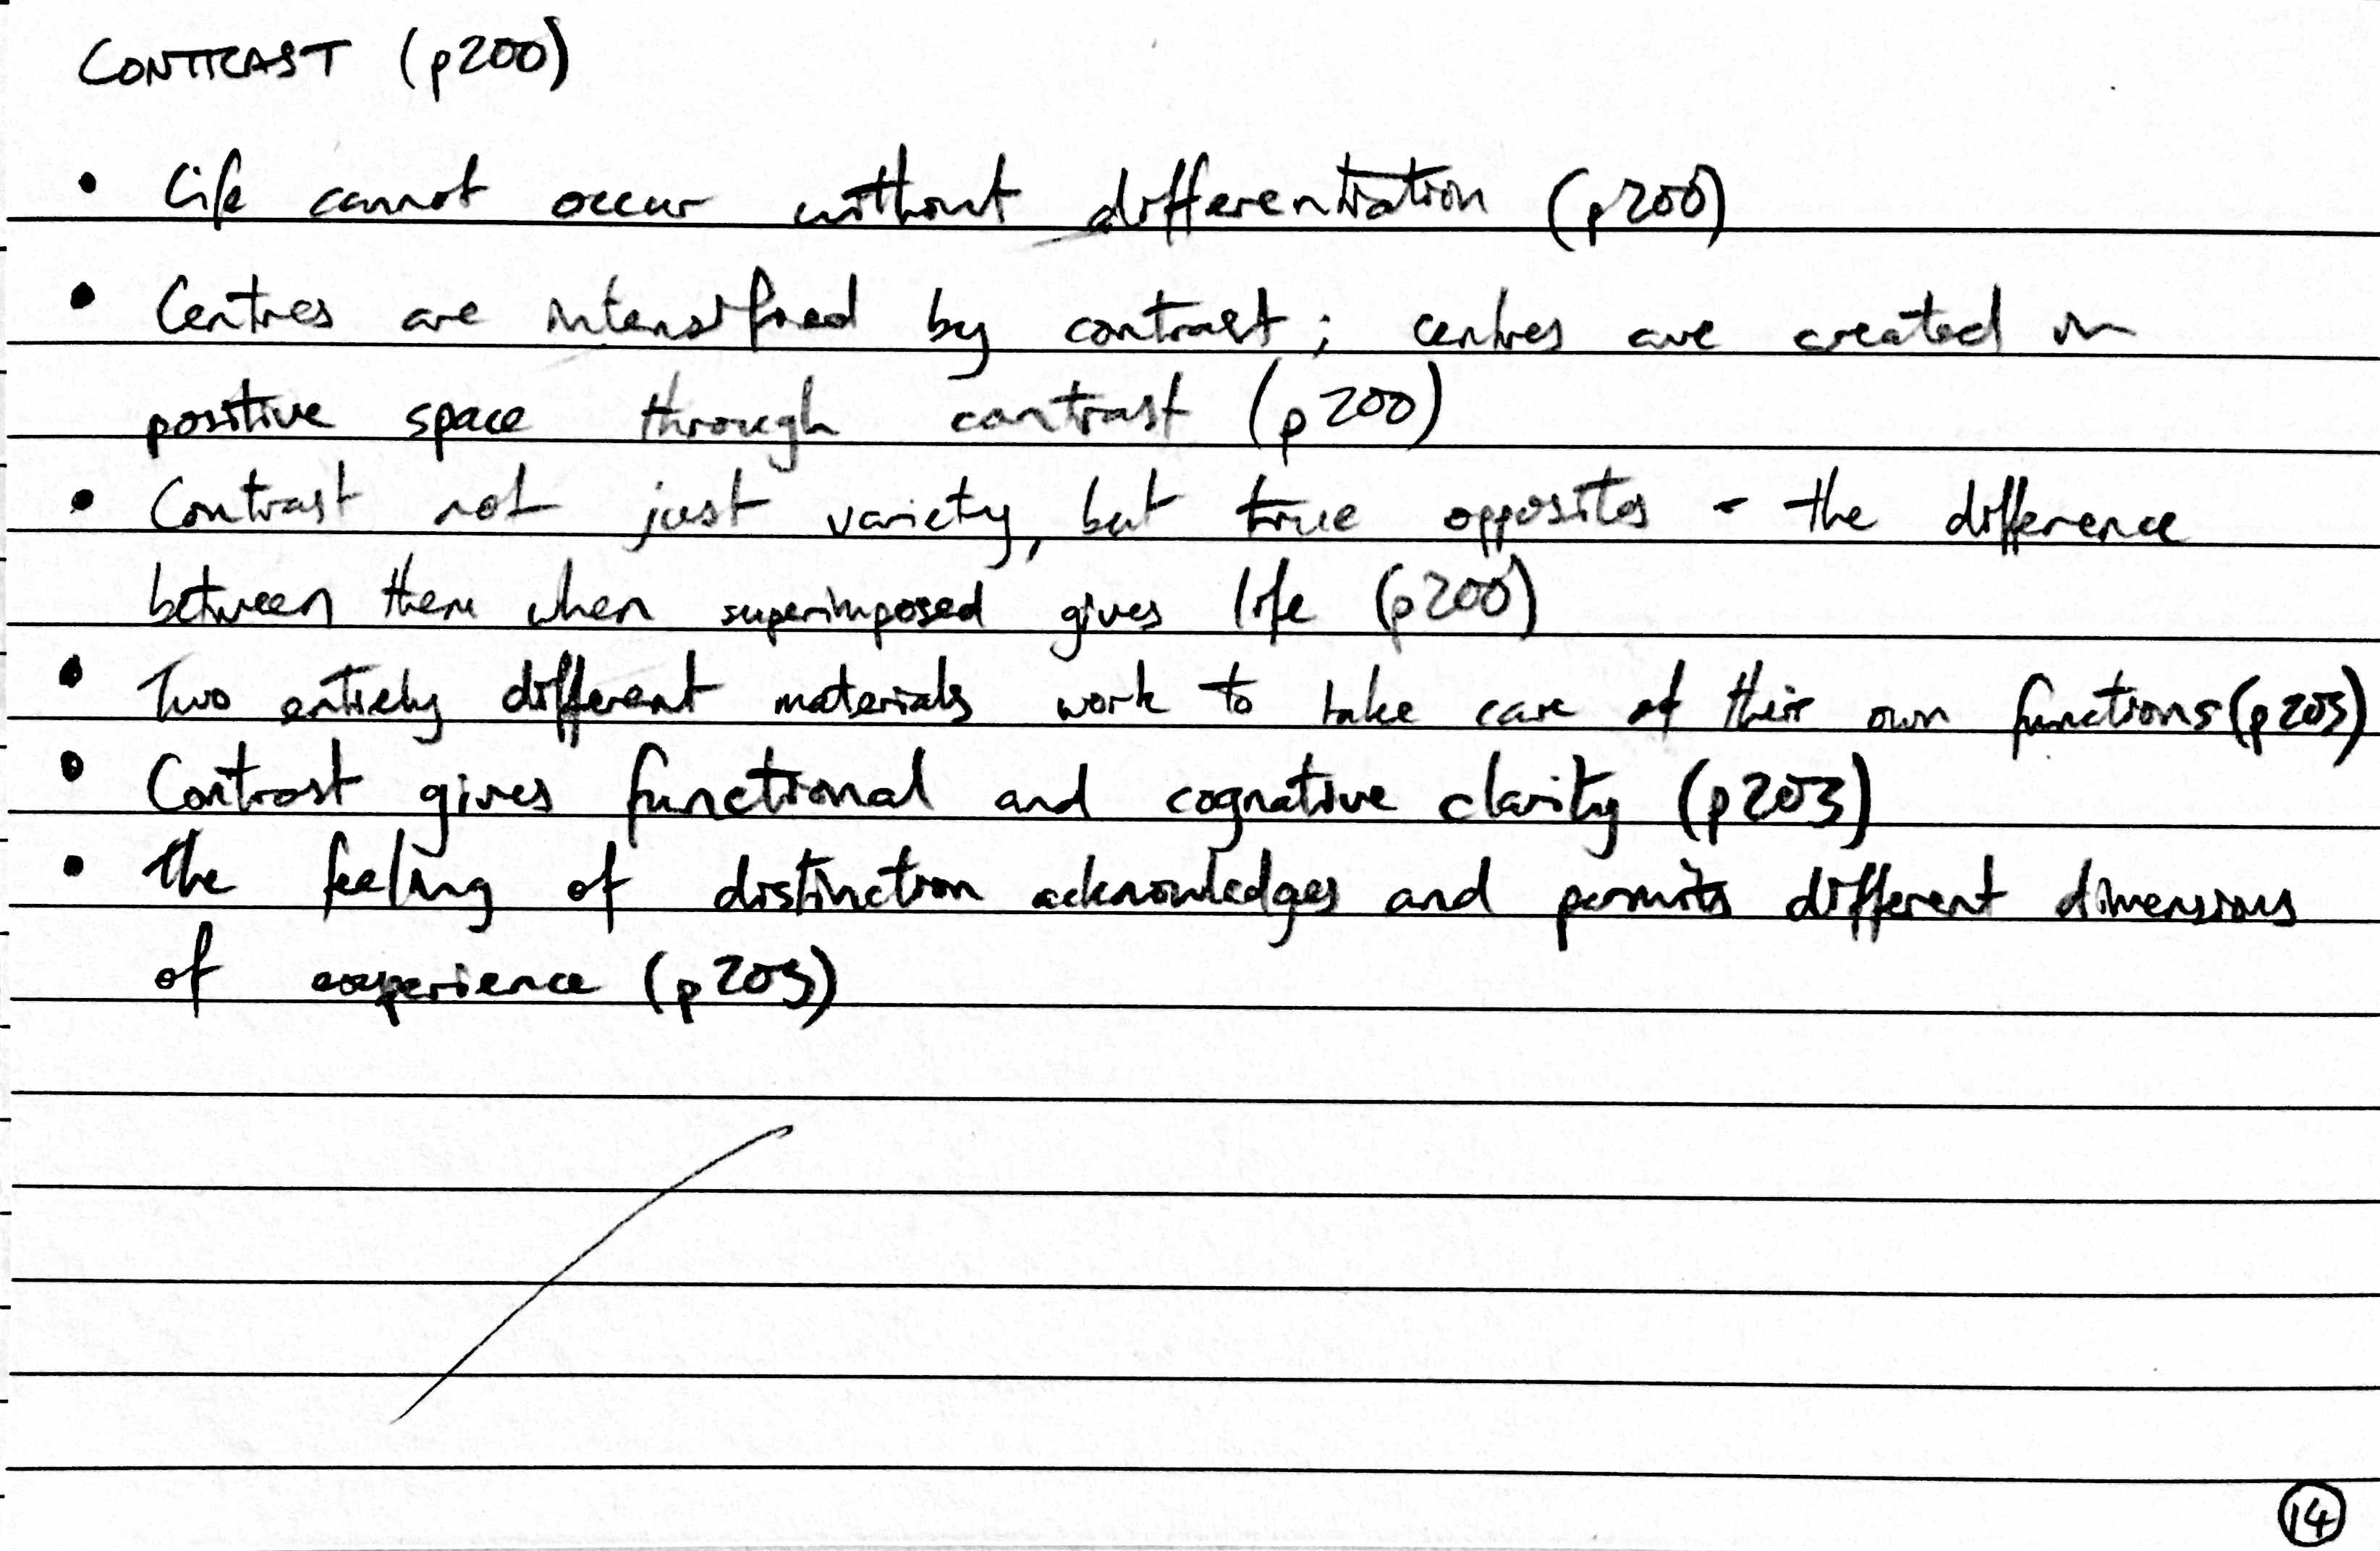 CONTRAST (p200)
• Life cannot occur without differentiation (p200)
• Centres are intensified by contrast; centres are created in
positive space through contrast (p200)
• Contrast not just variety, but true opposites - the difference
between them when superimposed gives life (p200)
• Two entirely different materials work to take care of their own functions (p203)
• Contrast gives functional and cognative clarity (p203)
• The feeling of distinction acknowledges and permits different dimensions
of experience (p203)
14